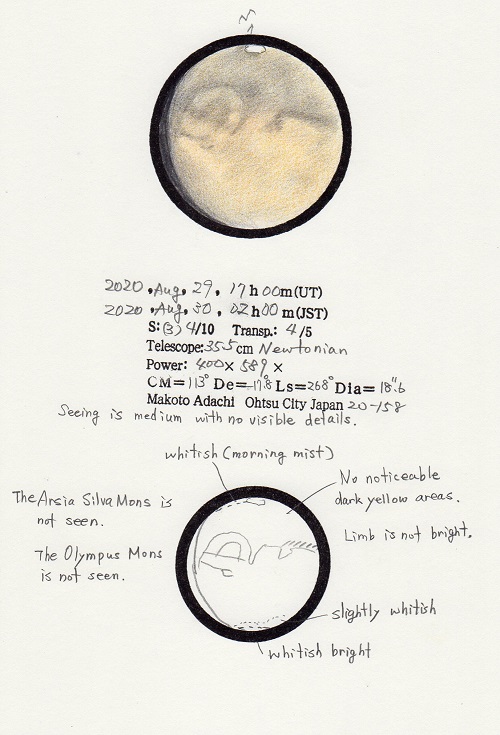 2020, Aug, 29, 17h00m(UT)
2020, Aug, 30, 02h00m(JST)
S:(3) 4/10 Transp.: 4/5
Telescope: 35.5cm Newtonian
Power: 400× 589×
CM=113° De=-17.8° Ls=268° Dia=18".6
Makoto Adachi Ohtsu City Japan 20-158
Seeing is medium with no visible details.
whitish (morning mist)
No noticeable
dark yellow areas.
The Arsia Silva Mons is
not seen.
Limb is not bright.
The Olympus Mons
is not seen.
slightly whitish
whitish bright